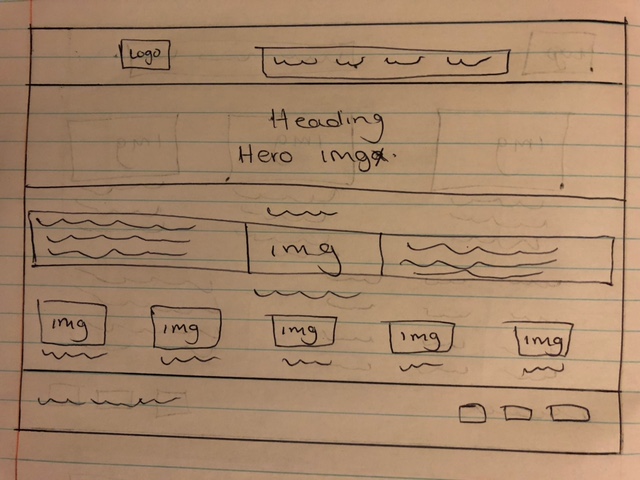 Logo
Heading
Hero img
img
img img img img img